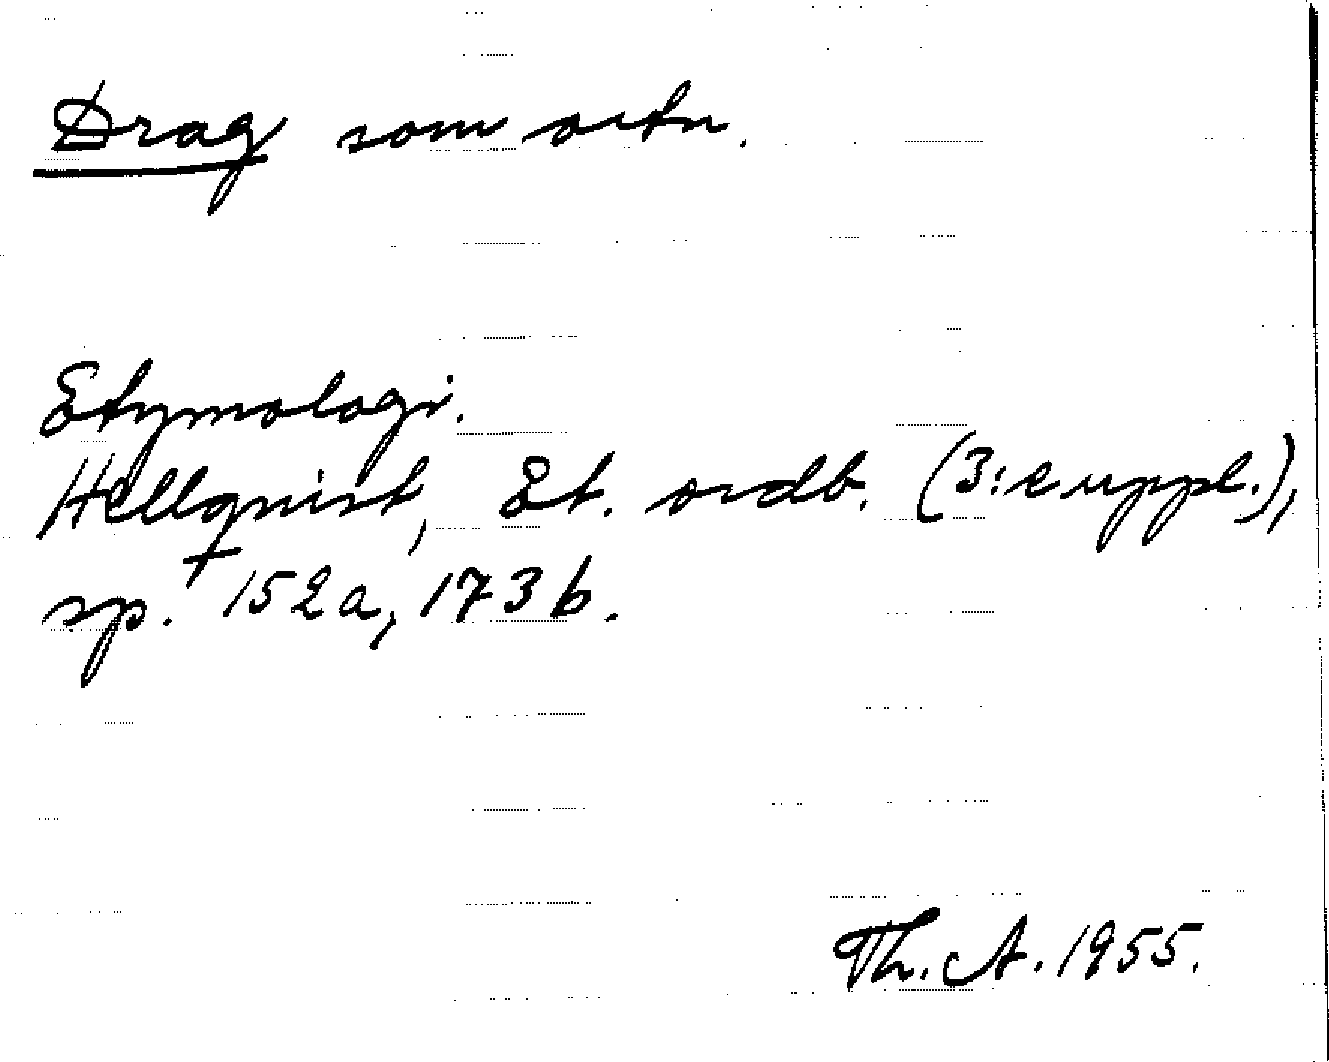 Drag som ortn.
Etymologi.
Hellquist, Et. ordb. (3:e uppl.),
sp. 152a, 173b.
Th. A. 1955.